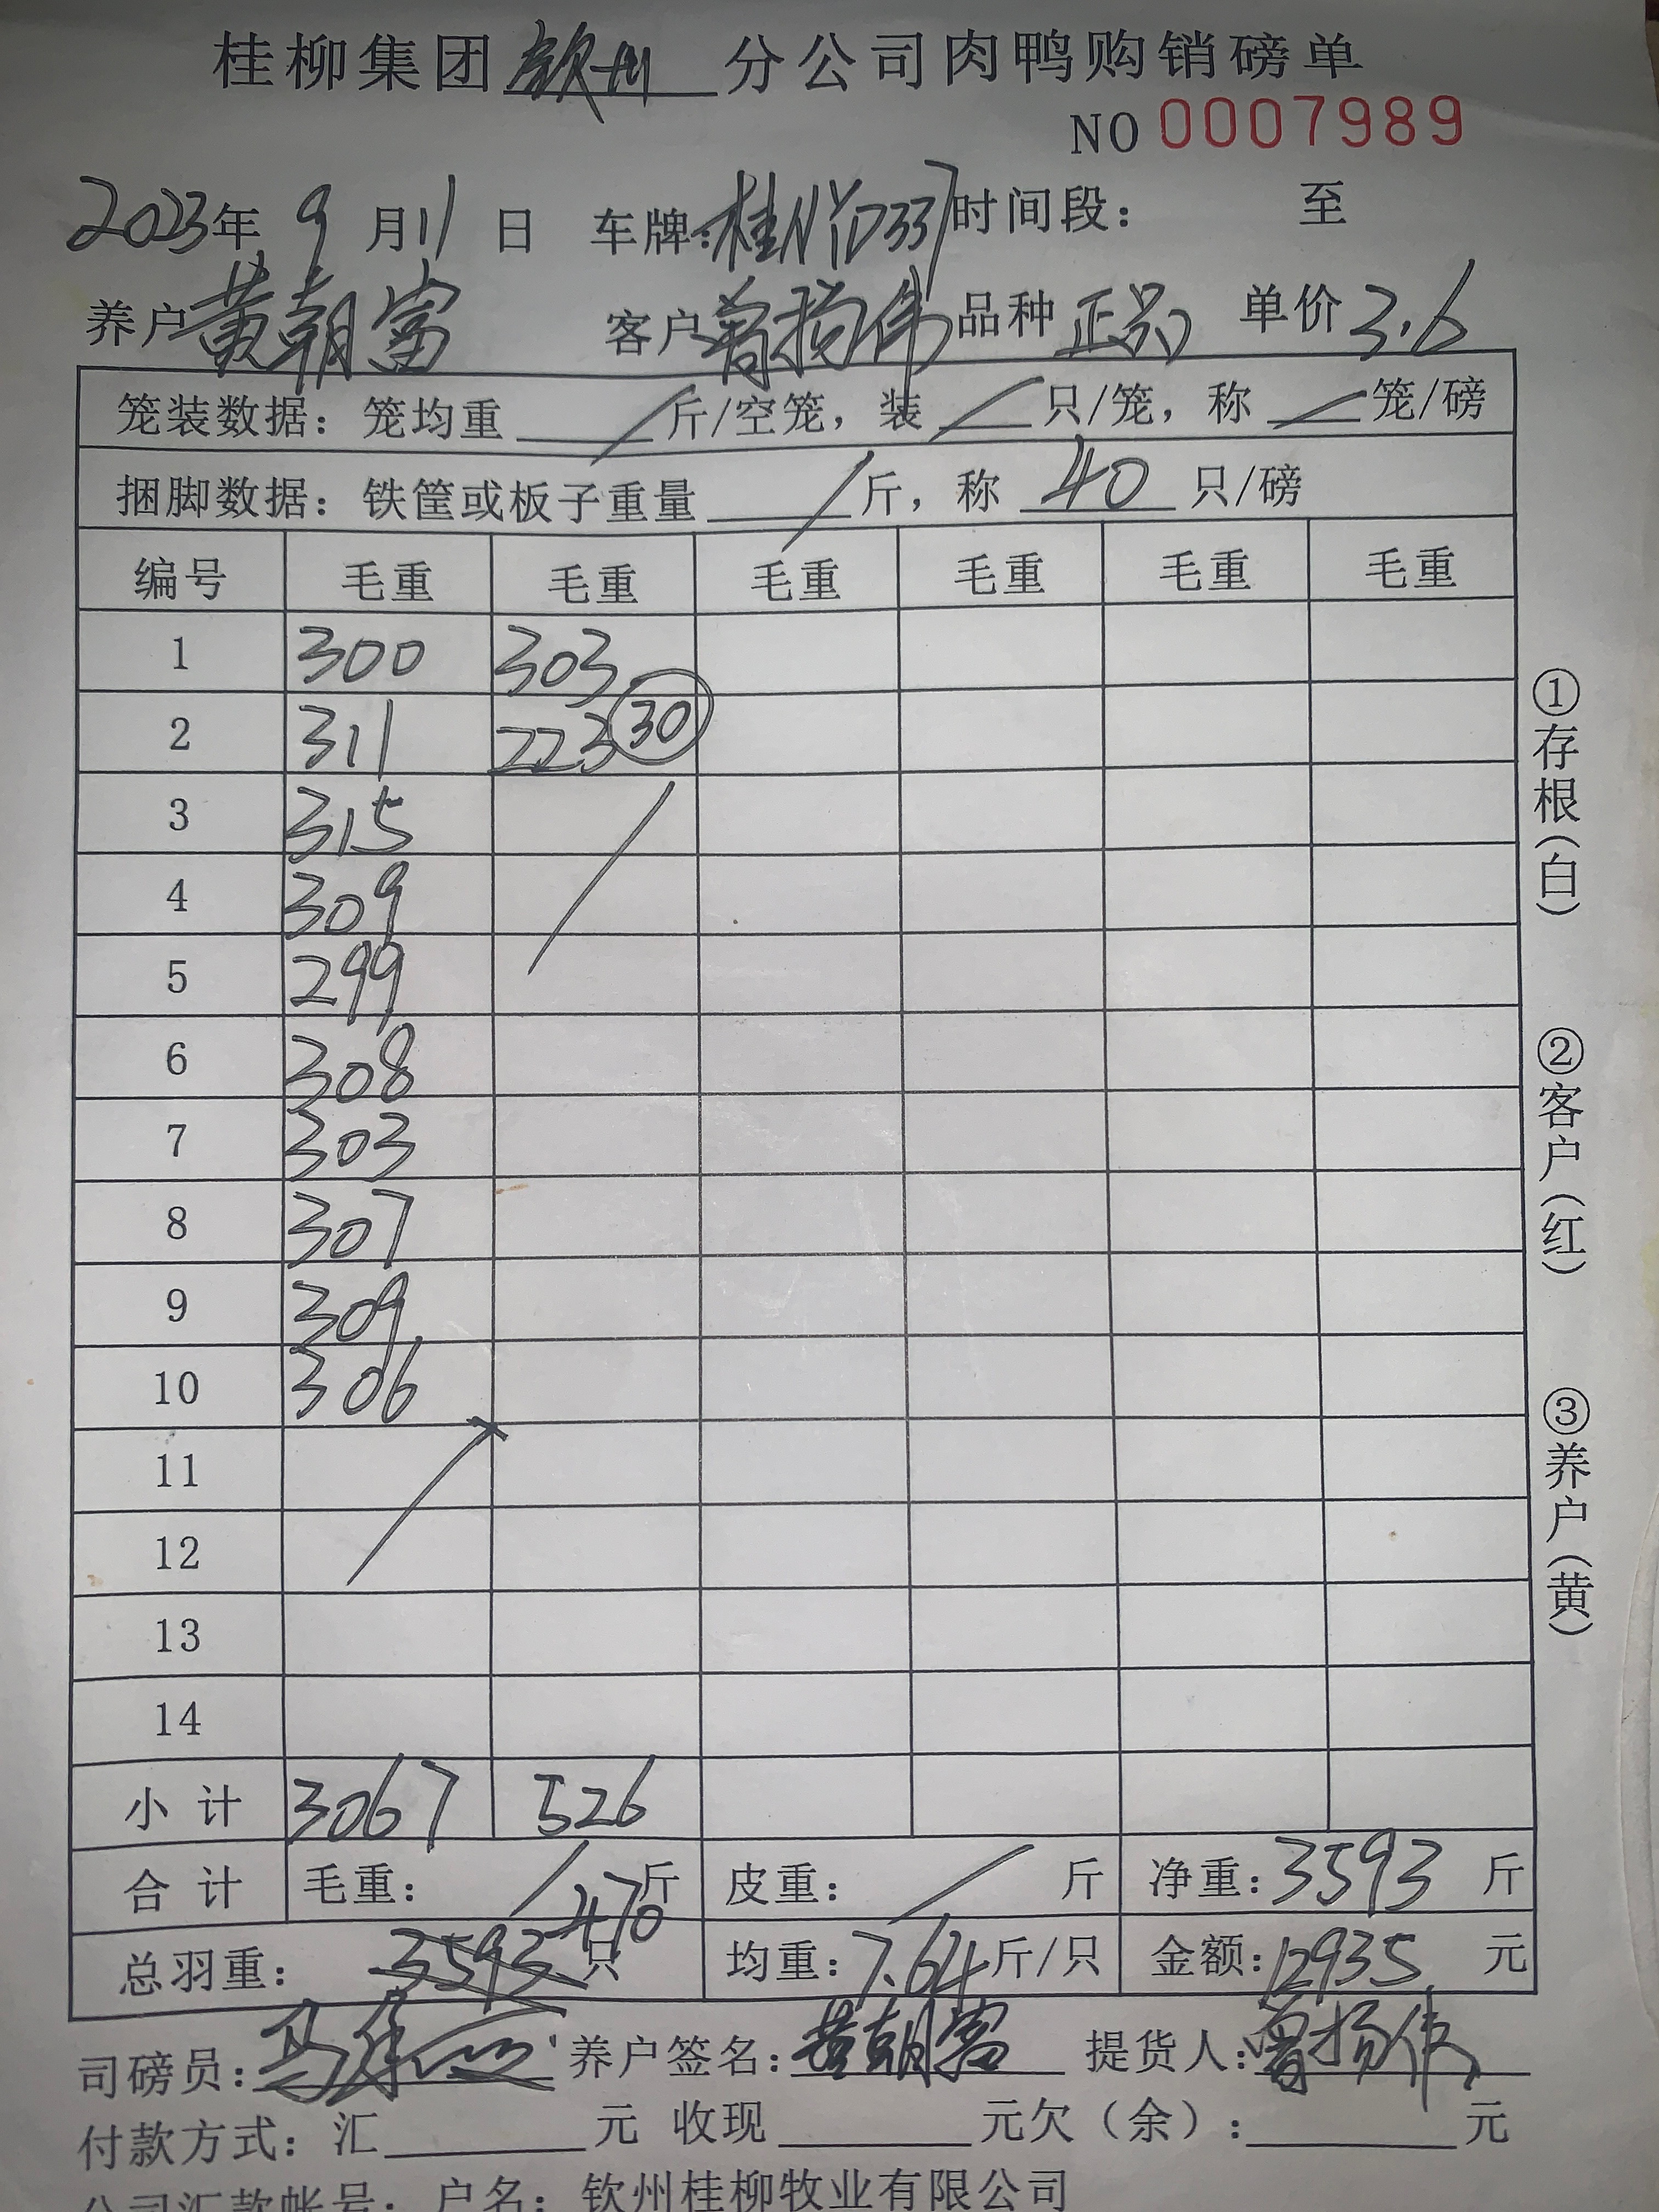 桂柳集团钦州分公司肉鸭购销磅单
NO 0007989
2023年 9 月 11 日 车牌:桂NYD337 时间段: 至
养户 黄朝富 客户 曾扬伟 品种 正品 单价 3.6
笼装数据: 笼均重 / 斤/空笼, 装 / 只/笼, 称 / 笼/磅
捆脚数据: 铁筐或板子重量 / 斤, 称 40 只/磅
编号 毛重 毛重 毛重 毛重 毛重 毛重
1 300 303
2 311 223 30
3 315
4 309
5 299
6 308
7 303
8 307
9 309
10 306
11
12
13
14
小计 3067 526
合计 毛重: / 斤 皮重: / 斤 净重: 3593 斤
总羽重: 3593 470 只 均重: 7.64 斤/只 金额: 12935 元
司磅员: 养户签名: 黄朝富 提货人: 曾扬伟
付款方式: 汇 元 收现 元欠(余): 元
公司汇款帐号: 户名: 钦州桂柳牧业有限公司
①存根(白)
②客户(红)
③养户(黄)